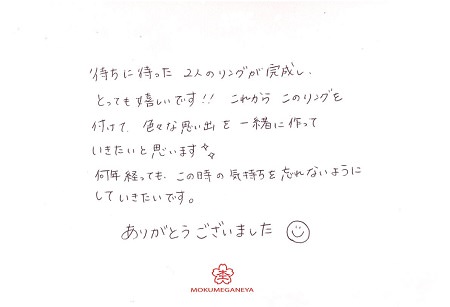 待ちに待った 2人のリングが完成し、
とっても嬉しいです!! これから このリングを
付けて、色々な思い出を 一緒に作って
いきたいと思います
何年経っても、この時の気持ちを忘れないように
していきたいです。
ありがとうございました
MOKUMEGANEYA